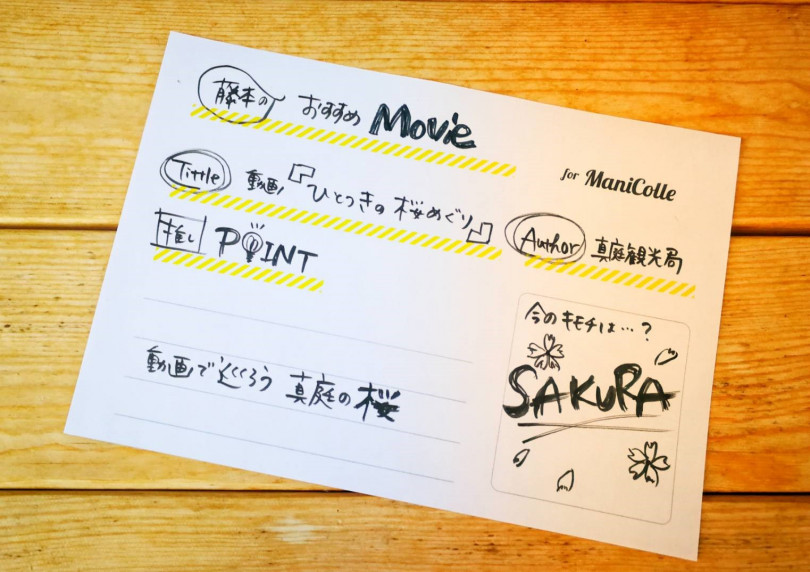 藤本の おすすめ Movie
for ManiColle
Tittle 動画『ひとつきの桜めぐり』
Author 真庭観光局
推し POINT
動画で巡ろう 真庭の桜
今のキモチは…?
SAKURA